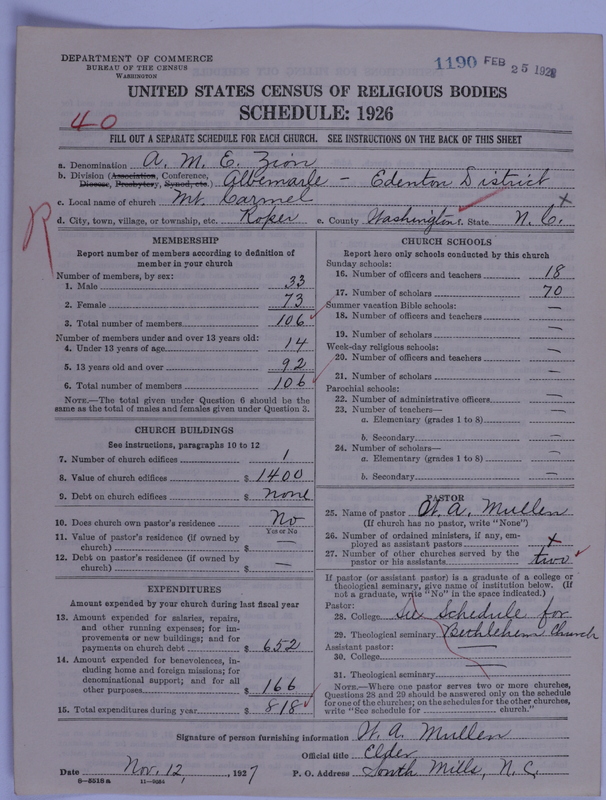 DEPARTMENT OF COMMERCE
BUREAU OF THE CENSUS
WASHINGTON
1190 FEB 25 1928
UNITED STATES CENSUS OF RELIGIOUS BODIES
SCHEDULE: 1926
40
FILL OUT A SEPARATE SCHEDULE FOR EACH CHURCH. SEE INSTRUCTIONS ON THE BACK OF THIS SHEET
a. Denomination A. M. E. Zion
b. Division (Association, Conference, Diocese, Presbytery, Synod, etc.) Albemarle - Edenton District
c. Local name of church Mt. Carmel x
d. City, town, village, or township, etc. Roper e. County Washington f. State N. C.
R
MEMBERSHIP
Report number of members according to definition of
member in your church
Number of members, by sex:
1. Male 33
2. Female 73
3. Total number of members 106
Number of members under and over 13 years old:
4. Under 13 years of age 14
5. 13 years old and over 92
6. Total number of members 106
NOTE.—The total given under Question 6 should be
same as the total of males and females given under Question 3.
CHURCH BUILDINGS
See instructions, paragraphs 10 to 12
7. Number of church edifices 1
8. Value of church edifices $ 1400
9. Debt on church edifices $ none
10. Does church own pastor's residence No
Yes or No
11. Value of pastor's residence (if owned by
church) $ —
12. Debt on pastor's residence (if owned by
church) $ —
EXPENDITURES
Amount expended by your church during last fiscal year
13. Amount expended for salaries, repairs,
and other running expenses; for im-
provements or new buildings; and for
payments on church debt $ 652
14. Amount expended for benevolences, in-
cluding home and foreign missions; for
denominational support; and for all
other purposes $ 166
15. Total expenditures during year $ 818
CHURCH SCHOOLS
Report here only schools conducted by this church
Sunday schools:
16. Number of officers and teachers 18
17. Number of scholars 70
Summer vacation Bible schools:
18. Number of officers and teachers —
19. Number of scholars —
Week-day religious schools:
20. Number of officers and teachers —
21. Number of scholars —
Parochial schools:
22. Number of administrative officers —
23. Number of teachers—
a. Elementary (grades 1 to 8) —
b. Secondary —
24. Number of scholars—
a. Elementary (grades 1 to 8) —
b. Secondary —
PASTOR
25. Name of pastor W. A. Mullen
(If church has no pastor, write "None")
26. Number of ordained ministers, if any, em-
ployed as assistant pastors x
27. Number of other churches served by the
pastor or his assistants two
If pastor (or assistant pastor) is a graduate of a college or
theological seminary, give name of institution below. (If
not a graduate, write "No" in the space indicated.)
Pastor:
28. College See Schedule for
29. Theological seminary Bethlehem Church
Assistant pastor:
30. College —
31. Theological seminary —
NOTE.—Where one pastor serves two or more churches,
Questions 28 and 29 should be answered only on the schedule
for one of the churches; on the schedules for the other churches,
write "See schedule for church."
Signature of person furnishing information W. A. Mullen
Official title Elder
Date Nov. 12, 1927 P. O. Address South Mills, N. C.
8—5518 a 11—9084